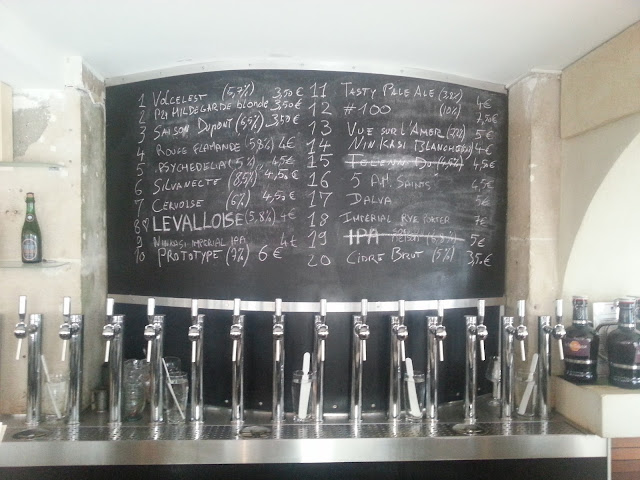 1 VOLCELEST (5,7%) 3,50€
2 P21 HILDEGARDE blonde 3,50€
3 SAISON DUPONT (6,5%) 3,50€
4 ROUGE FLAMANDE 5,8% 4€
5 PSYCHEDELIA (5%) 4,5€
6 SILVANECTE (8,5%) 4,50€
7 CERVOISE (6%) 4,50€
8 ♡ LEVALLOISE (5,8%) 4€
9 NINKASI IMPERIAL IPA 4€
10 PROTOTYPE (7%) 6€
11 TASTY PALE ALE (3.8%) 4€
12 #100 (10%) 7,50€
13 VUE SUR L'AMER (7%) 5€
14 NINKASI BLANCHE 4€
15 TELENN DU (4,5%) 4,50€
16 5 AM SAINTS 4,5€
17 DALVA 5€
18 IMPERIAL RYE PORTER 7€
19 IPA 5€
20 CIDRE BRUT (5%) 3,50€